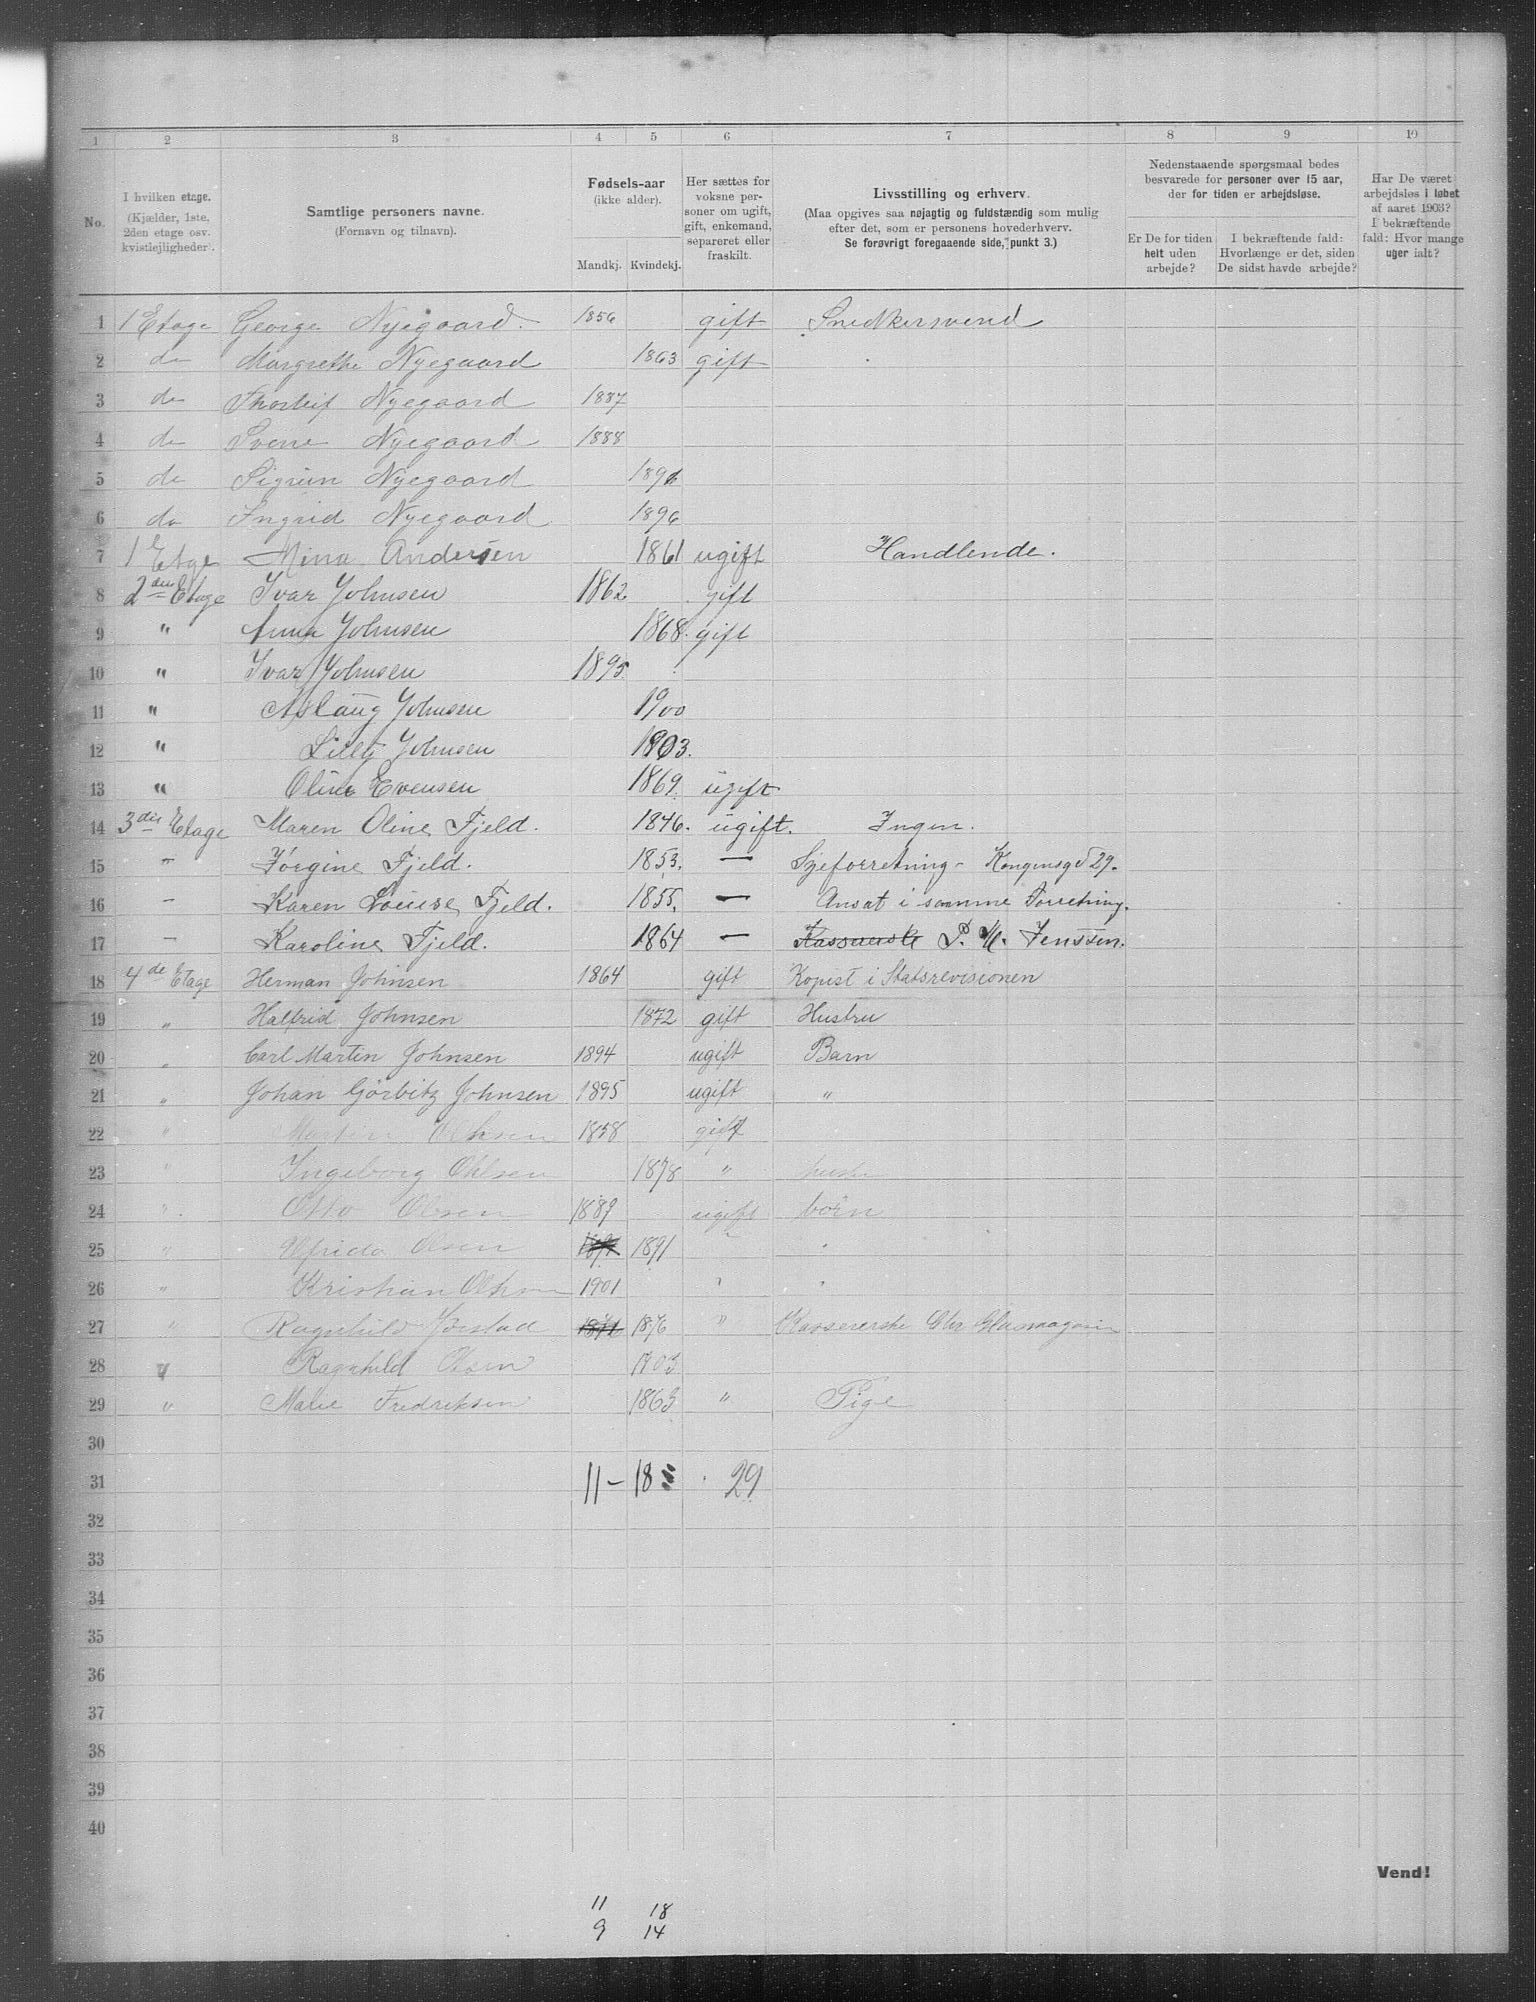 1 2 3 4 5 6 7 8 9 10
No.
I hvilken etage. (Kjælder, 1ste, 2den etage osv. kvistlejligheder).
Samtlige personers navne. (Fornavn og tilnavn).
Fødsels-aar (ikke alder). Mandkj. Kvindekj.
Her sættes for voksne personer om ugift, gift, enkemand, separeret eller fraskilt.
Livsstilling og erhverv. (Maa opgives saa nøjagtig og fuldstændig som mulig efter det, som er personens hovederhverv. Se forøvrigt foregaaende side, punkt 3.)
Nedenstaaende spørgsmaal bedes besvarede for personer over 15 aar, der for tiden er arbejdsløse.
Er De for tiden helt uden arbejde?
I bekræftende fald: Hvorlænge er det, siden De sidst havde arbejde?
Har De været arbejdsløs i løbet af aaret 1903? I bekræftende fald: Hvor mange uger ialt?
1 1 Etage George Nyegaard. 1856 gift Snedkersvend
2 do Margrethe Nyegaard 1863 gift
3 do Thorleif Nyegaard 1887
4 do Sverre Nyegaard 1888
5 do Sigrun Nyegaard 1896
6 do Ingrid Nyegaard 1896
7 1 Etage Mina Andersen 1861 ugift Handlende.
8 2den Etage Ivar Johnsen 1862 gift
9 " Anna Johnsen 1868. gift
10 " Ivar Johnsen 1895
11 " Aslaug Johnsen 1900
12 " Lilly Johnsen 1903.
13 " Oline Evensen 1869. ugift
14 3die Etage Maren Oline Fjeld. 1846. ugift. Ingen.
15 " Jørgine Fjeld. 1853. — Syforretning - Kongensgd 29.
16 – Karen Louise Fjeld. 1855. — Ansat i samme Forretning.
17 – Karoline Fjeld. 1864 — Kasserske P. M. Jenssen.
18 4de Etage Herman Johnsen 1864 gift Kopist i Statsrevisionen
19 " Halfrid Johnsen 1872 gift Hustru
20 " Carl Martin Johnsen 1894 ugift Barn
21 " Johan Görbitz Johnsen 1895 ugift "
22 " Martin Olsen 1858 gift
23 " Ingeborg Ohlsen 1878 " hustru
24 " Otto Olsen 1889 ugift börn
25 " Alfrida Olsen 1891
26 " Kristian Olsen 1901
27 " Ragnhild 1876 " Kassererske Chr Glasmagasin
28 " Ragnhild Olsen 1903
29 " Marie Fredriksen 1863 " Pige
30
31 11 – 18 29
32
33
34
35
36
37
38
39
40
Vend!
11 18
9 14